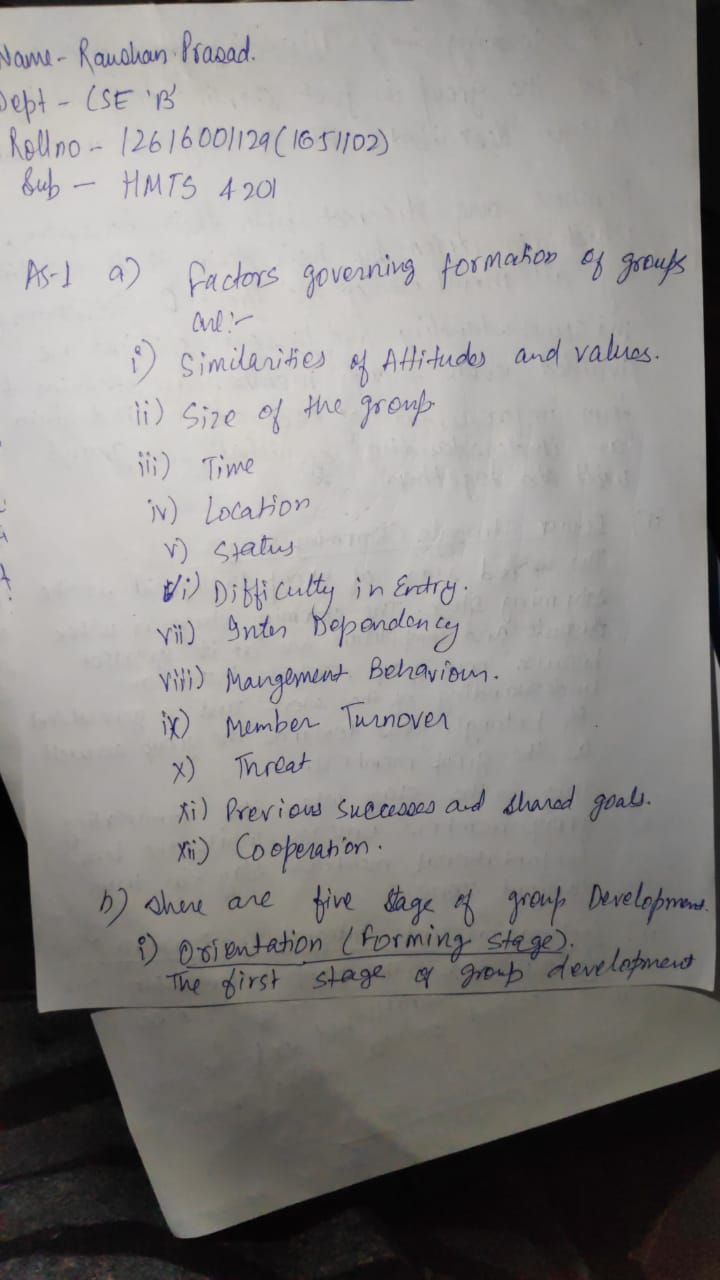 Name - Raushan Prasad.
Dept - CSE 'B'
Roll no - 12616001129 (1651102)
Sub - HMTS 4201
AS-1 a) factors governing formation of groups
are:-
i) Similarities of Attitudes and values.
ii) Size of the group
iii) Time
iv) Location
v) Status
vi) Difficulty in Entry.
vii) Inter Dependency
viii) Mangement Behaviour.
ix) Member Turnover
x) Threat
xi) Previous Successes and shared goals.
xii) Cooperation.
b) There are five stage of group Development.
i) Orientation (forming stage).
The first stage of group development